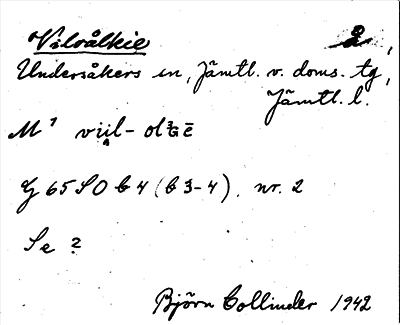 Vilvålkie å,
Undersåkers sn, Jämtl. v. doms. tg,
Jämtl. l.
M¹ viil-
G 65 SO b 4 (b 3-4). nr. 2
Se 2
Björn Collinder 1942